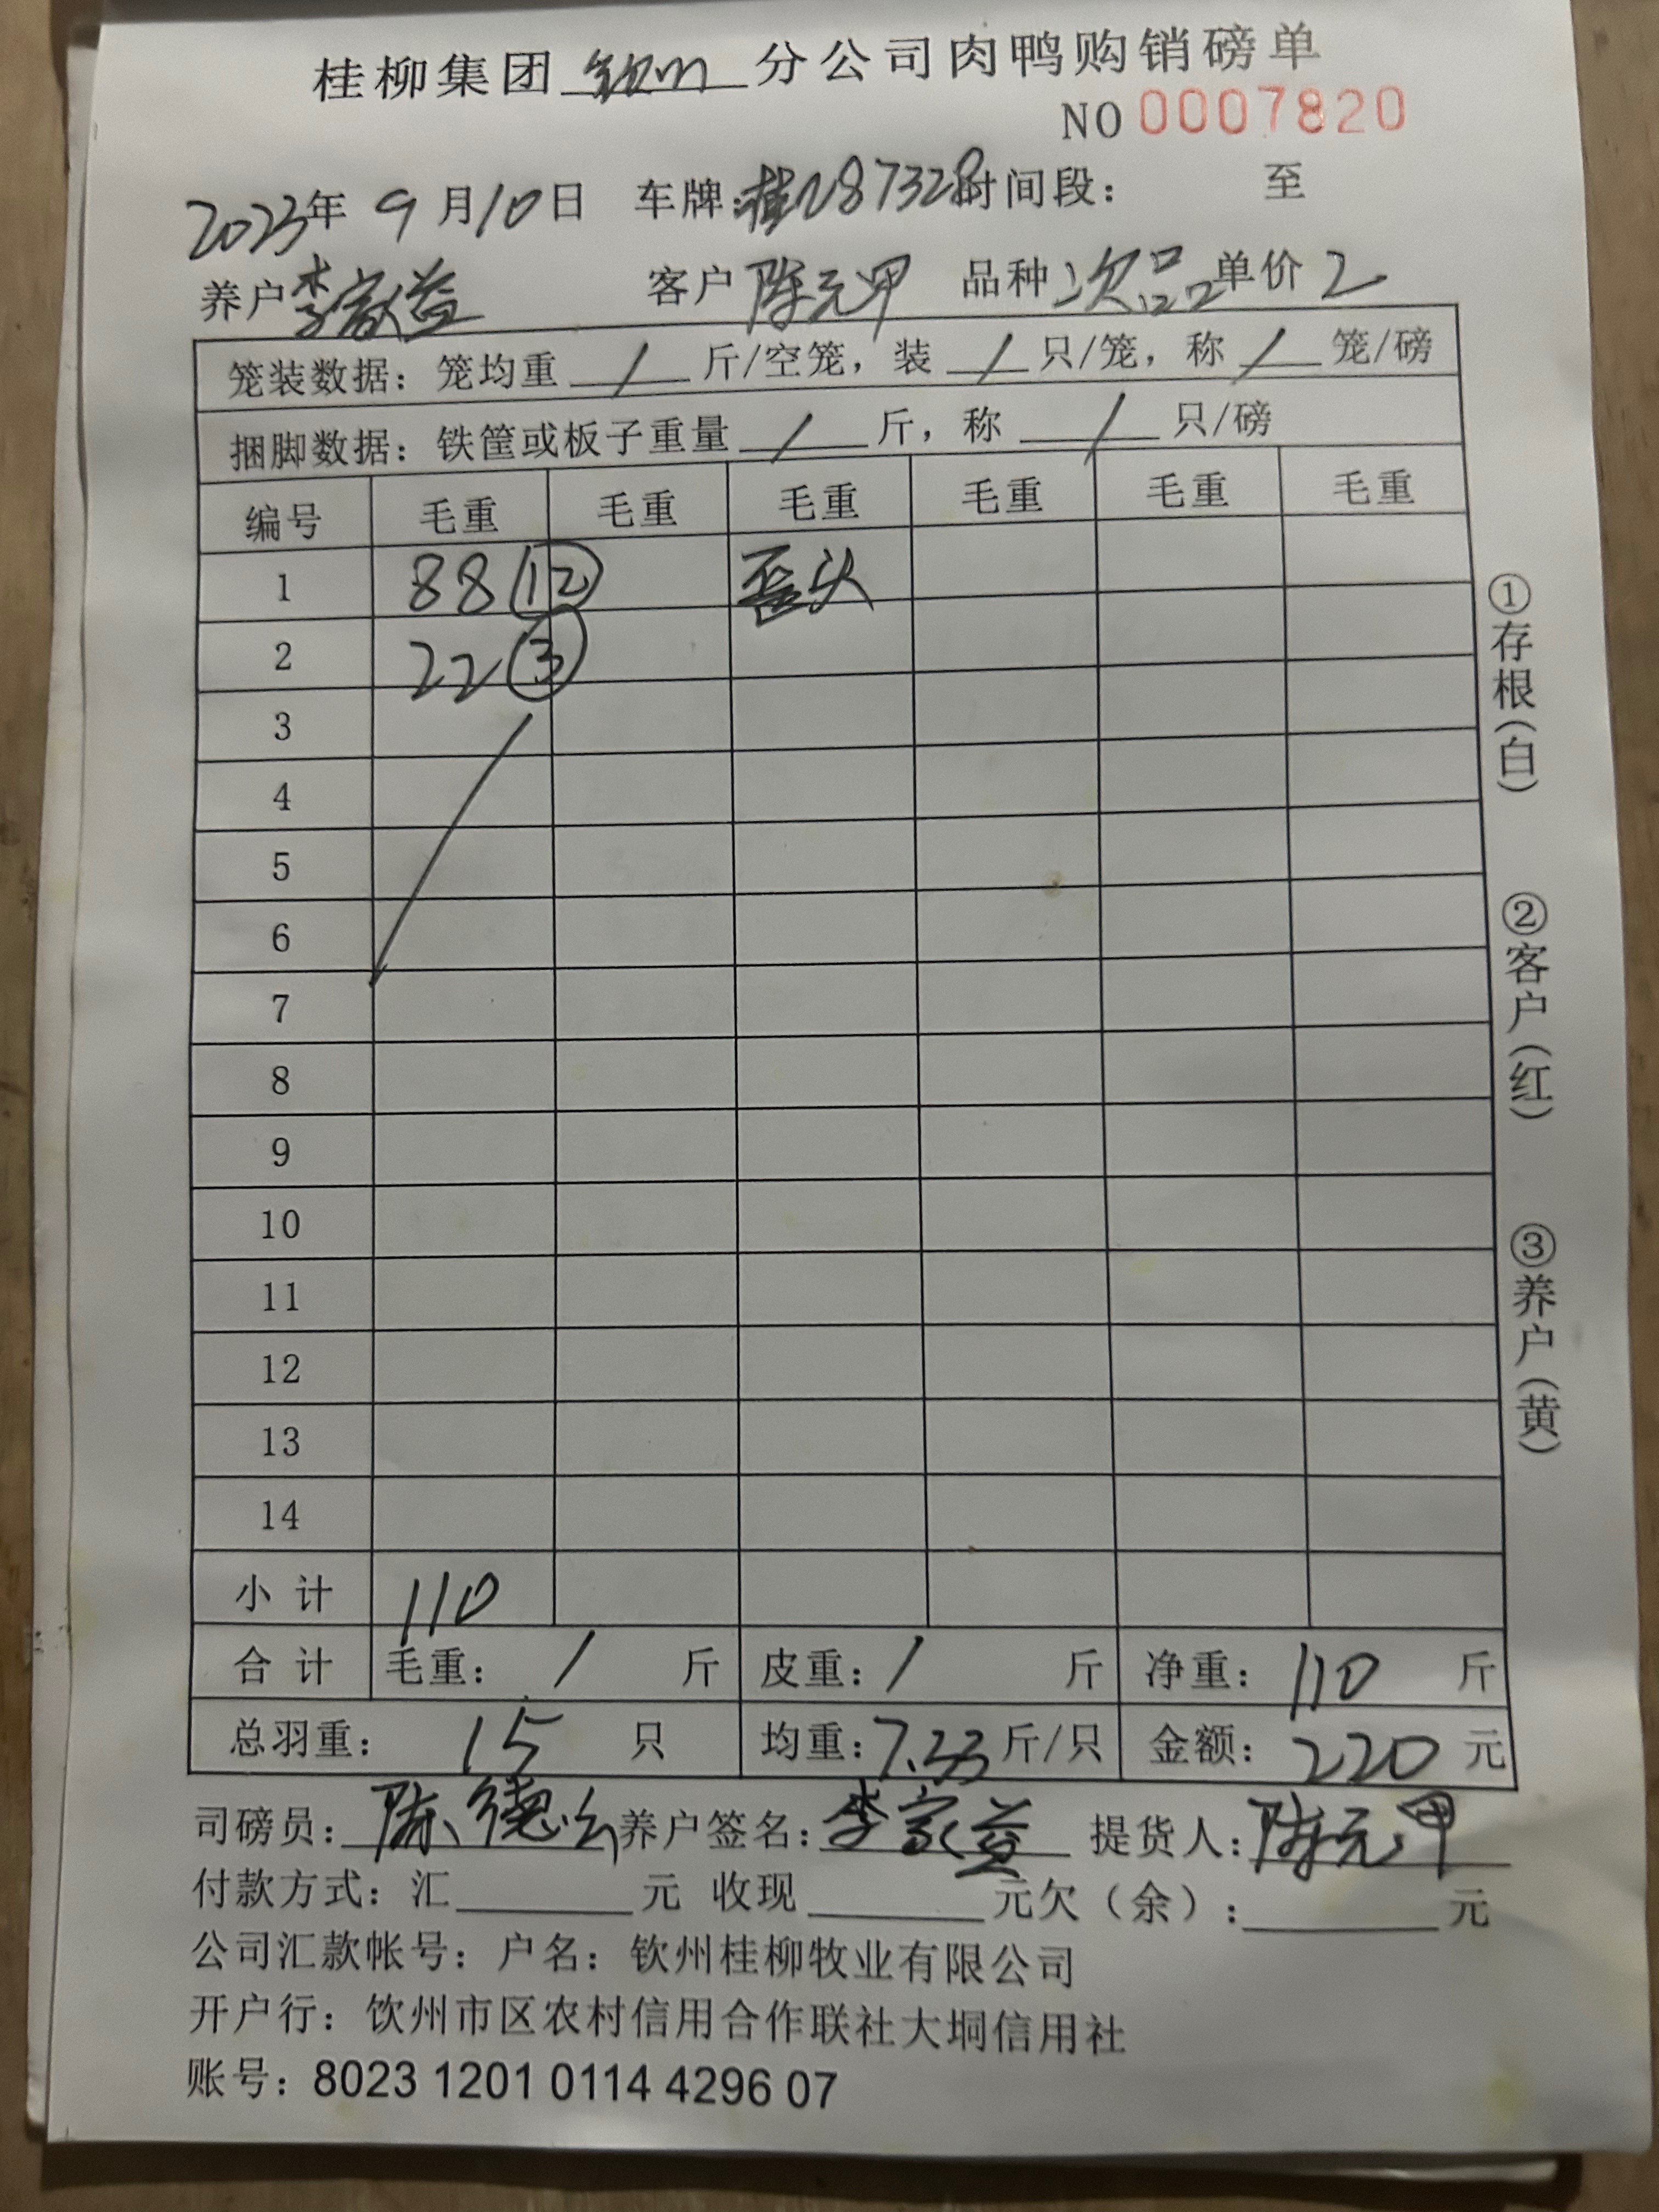 桂柳集团 钦州 分公司肉鸭购销磅单
NO 0007820
2023年 9月10日 车牌:桂N87328 时间段: 至
养户 李家益 客户 陈元甲 品种 次品 单价 2
笼装数据: 笼均重 / 斤/空笼, 装 / 只/笼, 称 / 笼/磅
捆脚数据: 铁筐或板子重量 / 斤, 称 / 只/磅
编号 毛重 毛重 毛重 毛重 毛重 毛重
1 88 ⑫ 歪头
2 22 ③
3
4
5
6
7
8
9
10
11
12
13
14
小计 110
合计 毛重: / 斤 皮重: / 斤 净重: 110 斤
总羽重: 15 只 均重: 7.33 斤/只 金额: 220 元
司磅员: 陈德 养户签名: 李家益 提货人: 陈元甲
付款方式: 汇 元 收现 元欠(余): 元
公司汇款帐号: 户名: 钦州桂柳牧业有限公司
开户行: 钦州市区农村信用合作联社大垌信用社
账号: 8023 1201 0114 4296 07
①存根(白)
②客户(红)
③养户(黄)